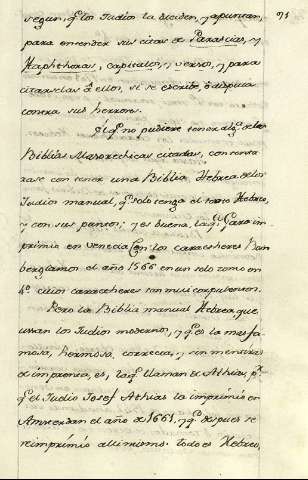 91
segun, q̃ los Judios la dividen, y apuntan,
para entender sus citas de Parascias, y
Haphtharas, capitulos, y versos, y para
citarselas à ellos, si se escribe, ò disputa
contra sus herrores.
El q̃ no pudiere tener alg.ᵃ de las
Biblias Masorethicas citadas, contenta
rase con tener una Biblia Hebrea de los
Judios manual, q̃ solo tenga el texto Hebreo,
y con sus puntos; y es buena, la q̃ Garo im-
primio en Venecia con los caracteres Bom
bergianos el año 1566 en un solo tomo en
4.º cuios caracteres son mui corpulentos.
Pero la Biblia manual Hebrea, que
usan los Judios modernos, y q̃ es la mas fa
mosa, hermosa, correcta, y sin mentiras
de imprenta, es, la q̃ llaman de Athias, p.ʳ
q̃ el Judio Josef Athias la imprimiò en
Amsterdan el año de 1661, y q̃ despues se
reimprimiò alli mismo. todo es Hebreo,